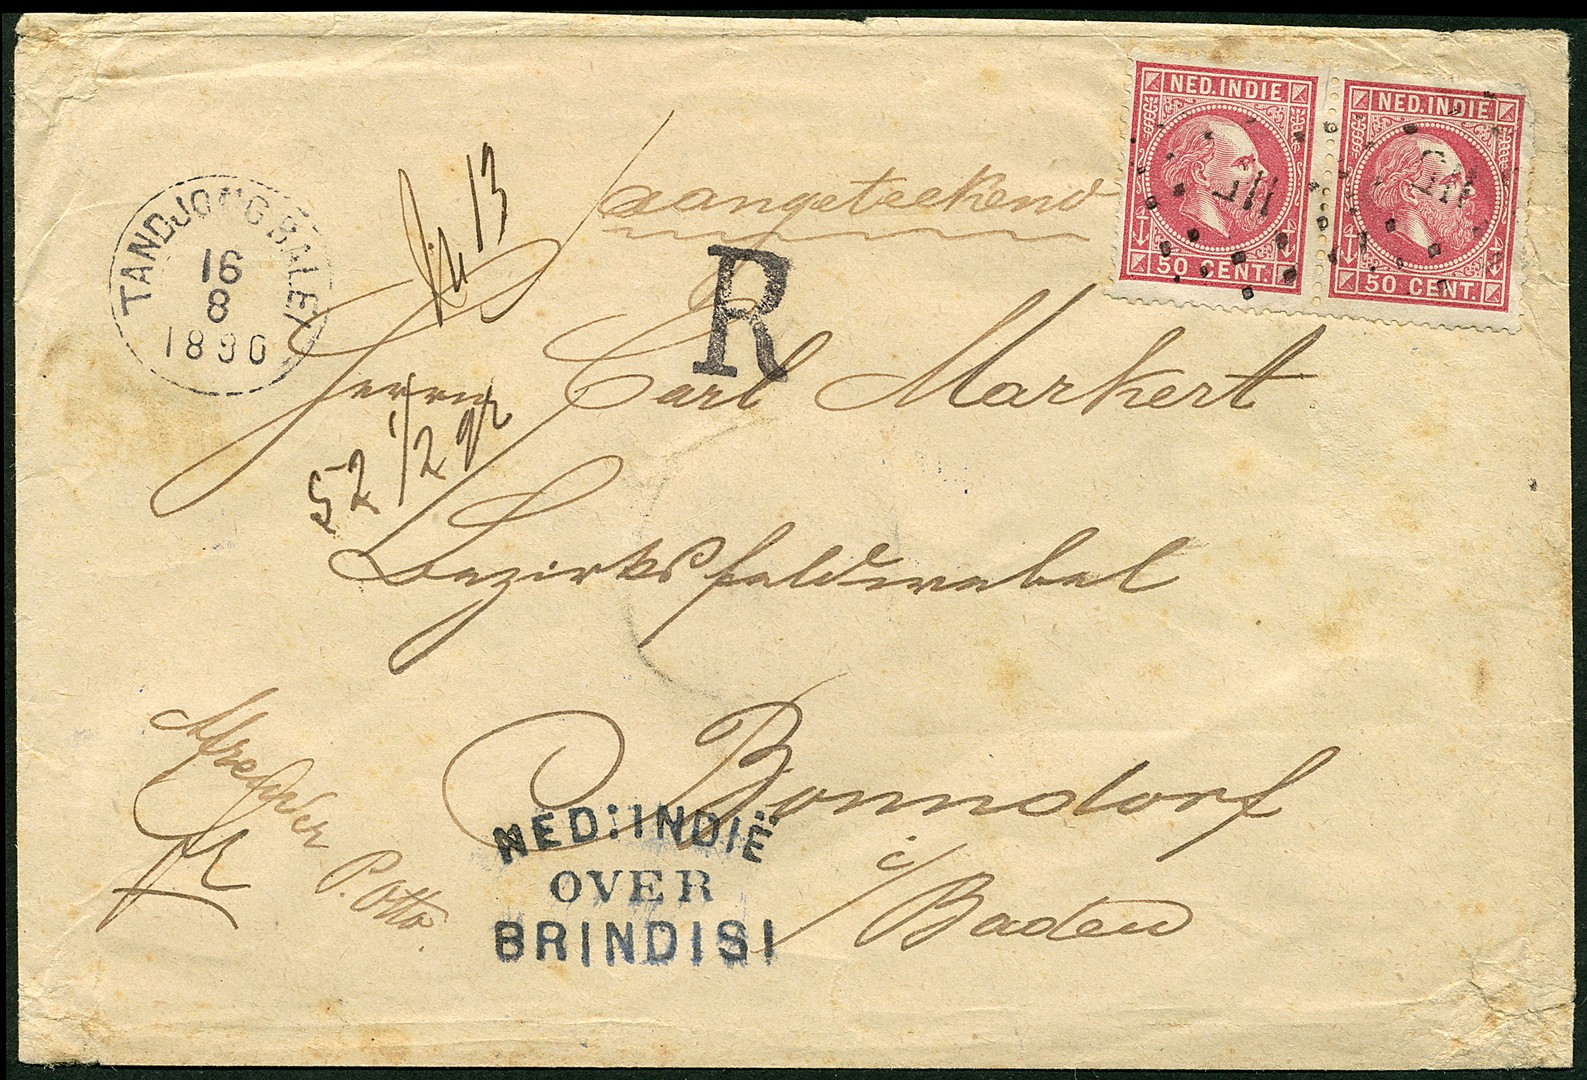 NED. INDIE
50 CENT.
NED. INDIE
50 CENT.
aangeteekend
R
TANDJONG BALEI
16
8
1890
No 13
Herrn Carl Markert
52 1/2 gr
Bezirksfeldwebel
Bonndorf
i/Baden
Absender
P. Otto.
NED: INDIË
OVER
BRINDISI